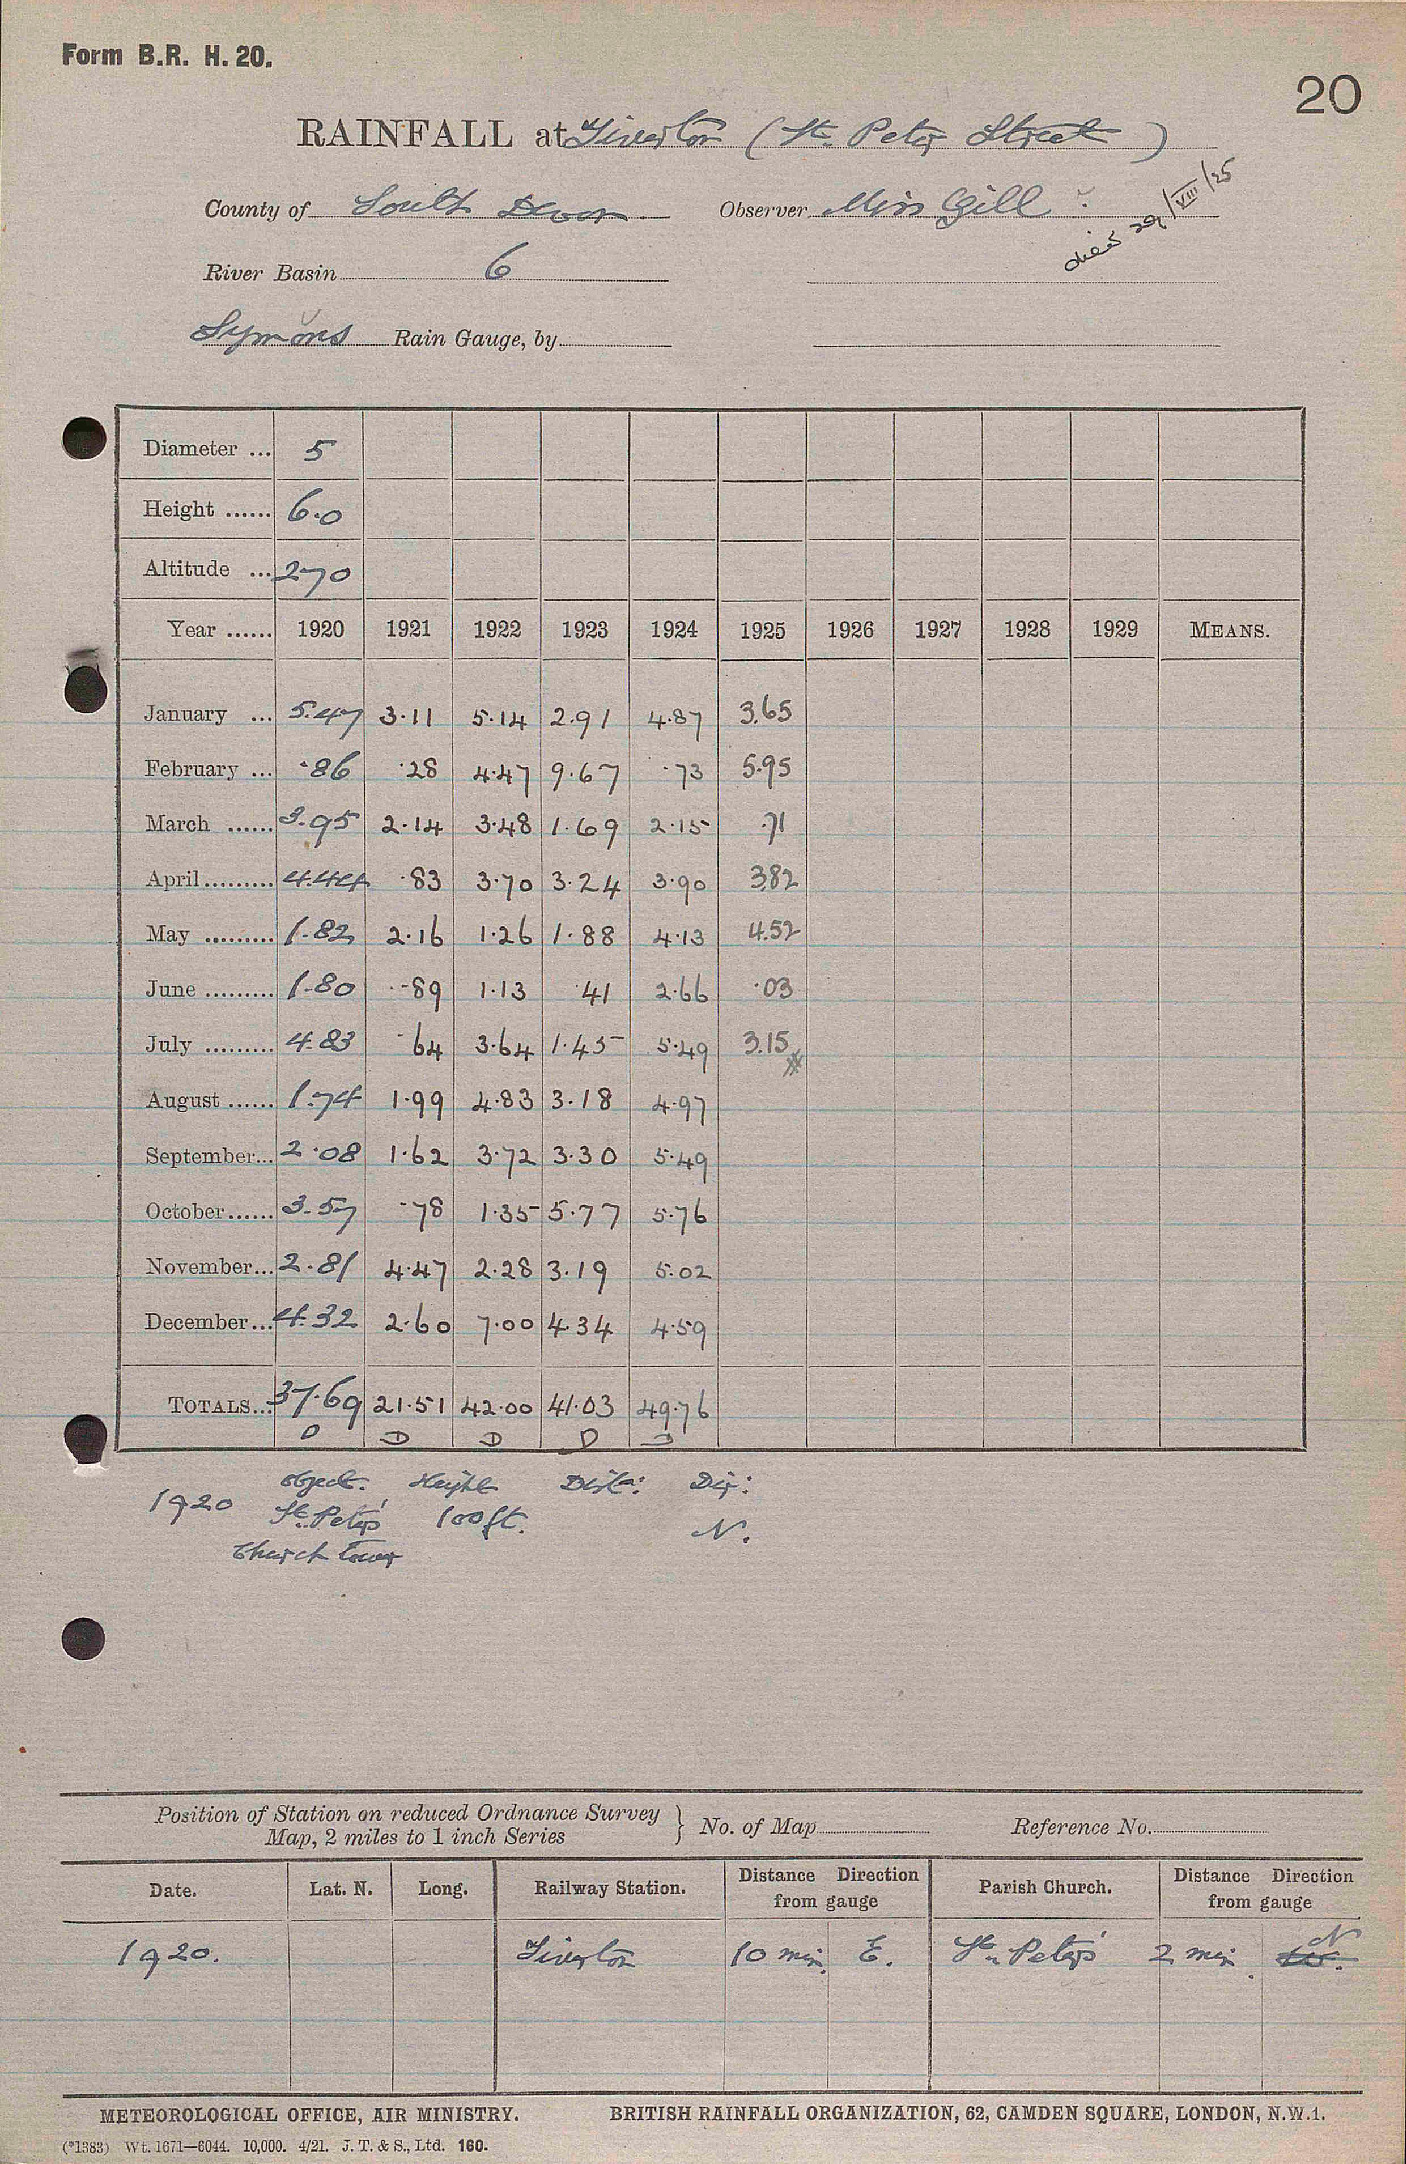 Form B.R. H. 20.
20
RAINFALL at Tiverton (St. Peter Street)
County of South Devon Observer Miss Gill
died 29/VIII/25
River Basin 6
Symons Rain Gauge, by
Diameter ... 5
Height ...... 6.0
Altitude ... 270
Year ...... 1920 1921 1922 1923 1924 1925 1926 1927 1928 1929 MEANS.
January ... 5.47 3.11 5.14 2.91 4.87 3.65
February ... .86 .28 4.47 9.67 .73 5.95
March ...... 3.95 2.14 3.48 1.69 2.15 .71
April ......... 4.44 .83 3.70 3.24 3.90 3.82
May ......... 1.82 2.16 1.26 1.88 4.13 4.52
June ......... 1.80 .89 1.13 .41 2.66 .03
July ......... 4.83 .64 3.64 1.45 5.49 3.15
August ...... 1.74 1.99 4.83 3.18 4.97
September... 2.08 1.62 3.72 3.30 5.49
October...... 3.57 .78 1.35 5.77 5.76
November... 2.81 4.47 2.28 3.19 5.02
December... 4.32 2.60 7.00 4.34 4.59
TOTALS... 37.69 21.51 42.00 41.03 49.76
D D D D D
Object. Height Dist: Dir:
1920 St. Peter's 100 ft. N.
Church tower
Position of Station on reduced Ordnance Survey
Map, 2 miles to 1 inch Series } No. of Map Reference No.
Date. Lat. N. Long. Railway Station. Distance Direction from gauge Parish Church. Distance Direction from gauge
1920. Tiverton 10 min. E. St. Peter's 2 min. N
METEOROLOGICAL OFFICE, AIR MINISTRY. BRITISH RAINFALL ORGANIZATION, 62, CAMDEN SQUARE, LONDON, N.W.1.
(*1383) Wt. 1671—6044. 10,000. 4/21. J. T. & S., Ltd. 160.